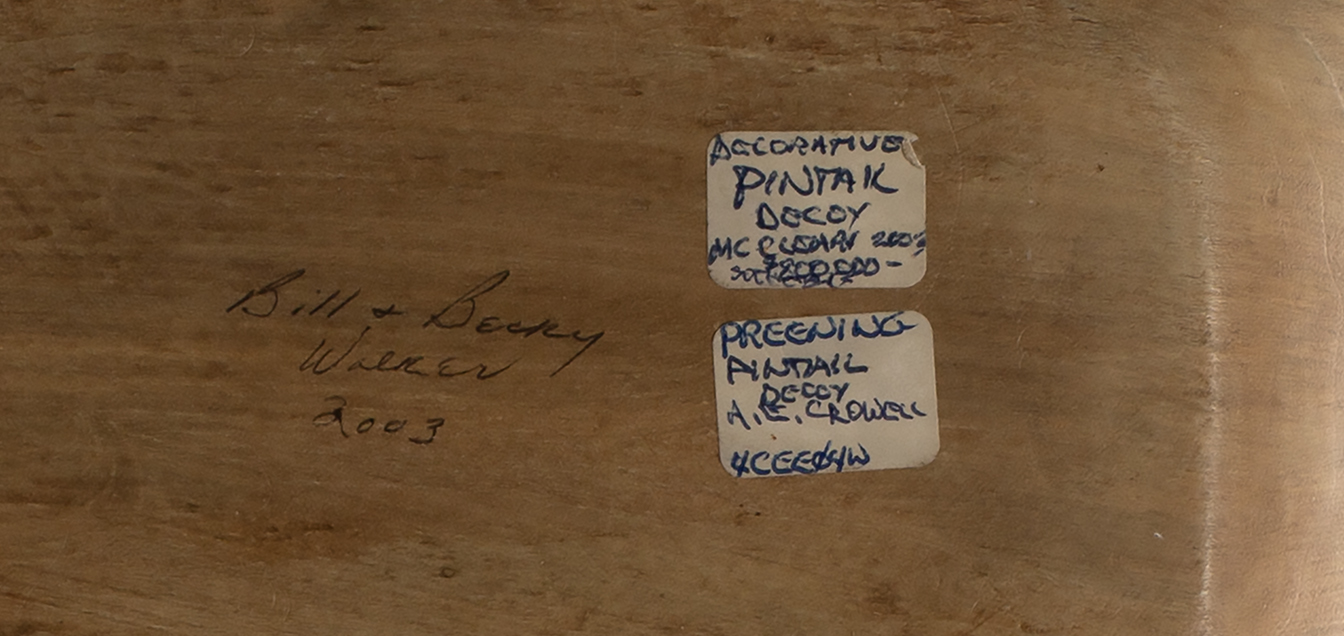 Bill & Becky
Walker
2003
DECORATIVE
PINTAIL
DECOY
MCCLEARY 2003
PREENING
PINTAIL
DECOY
A.E. CROWELL